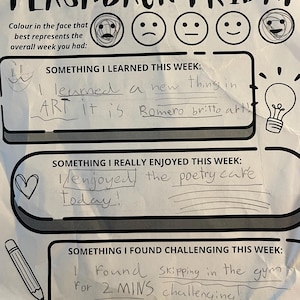 FLASHBACK FRIDAY
Colour in the face that
best represents the
overall week you had:
SOMETHING I LEARNED THIS WEEK:
I learned a new thing in
ART it is Romero britto art!
SOMETHING I REALLY ENJOYED THIS WEEK:
I enjoyed the poetry cafe
today!
SOMETHING I FOUND CHALLENGING THIS WEEK:
I found skipping in the gym
for 2 MINS challenging!